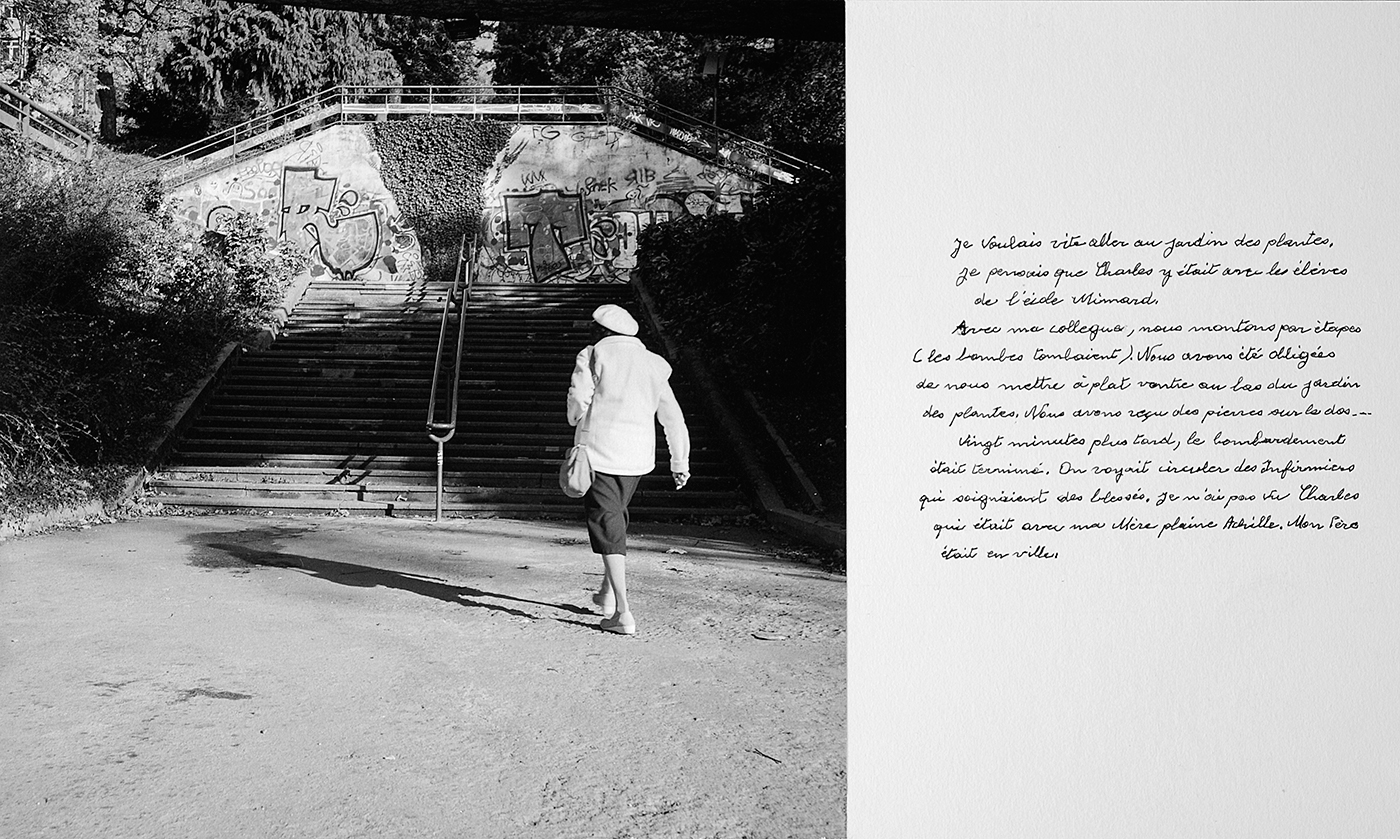 FG
SHEK
Je voulais vite aller au jardin des plantes,
Je pensais que Charles y était avec les élèves
de l'école Mimard.
Avec ma collegue, nous montons par étapes
(les bombes tombaient). Nous avons été obligées
de nous mettre à plat ventre au bas du jardin
des plantes. Nous avons reçu des pierres sur le dos---
Vingt minutes plus tard, le bombardement
était terminé. On voyait circuler des Infirmiers
qui soignaient des blessés. Je n'ai pas vu Charles
qui était avec ma Mère plaine Achille. Mon Père
était en ville.